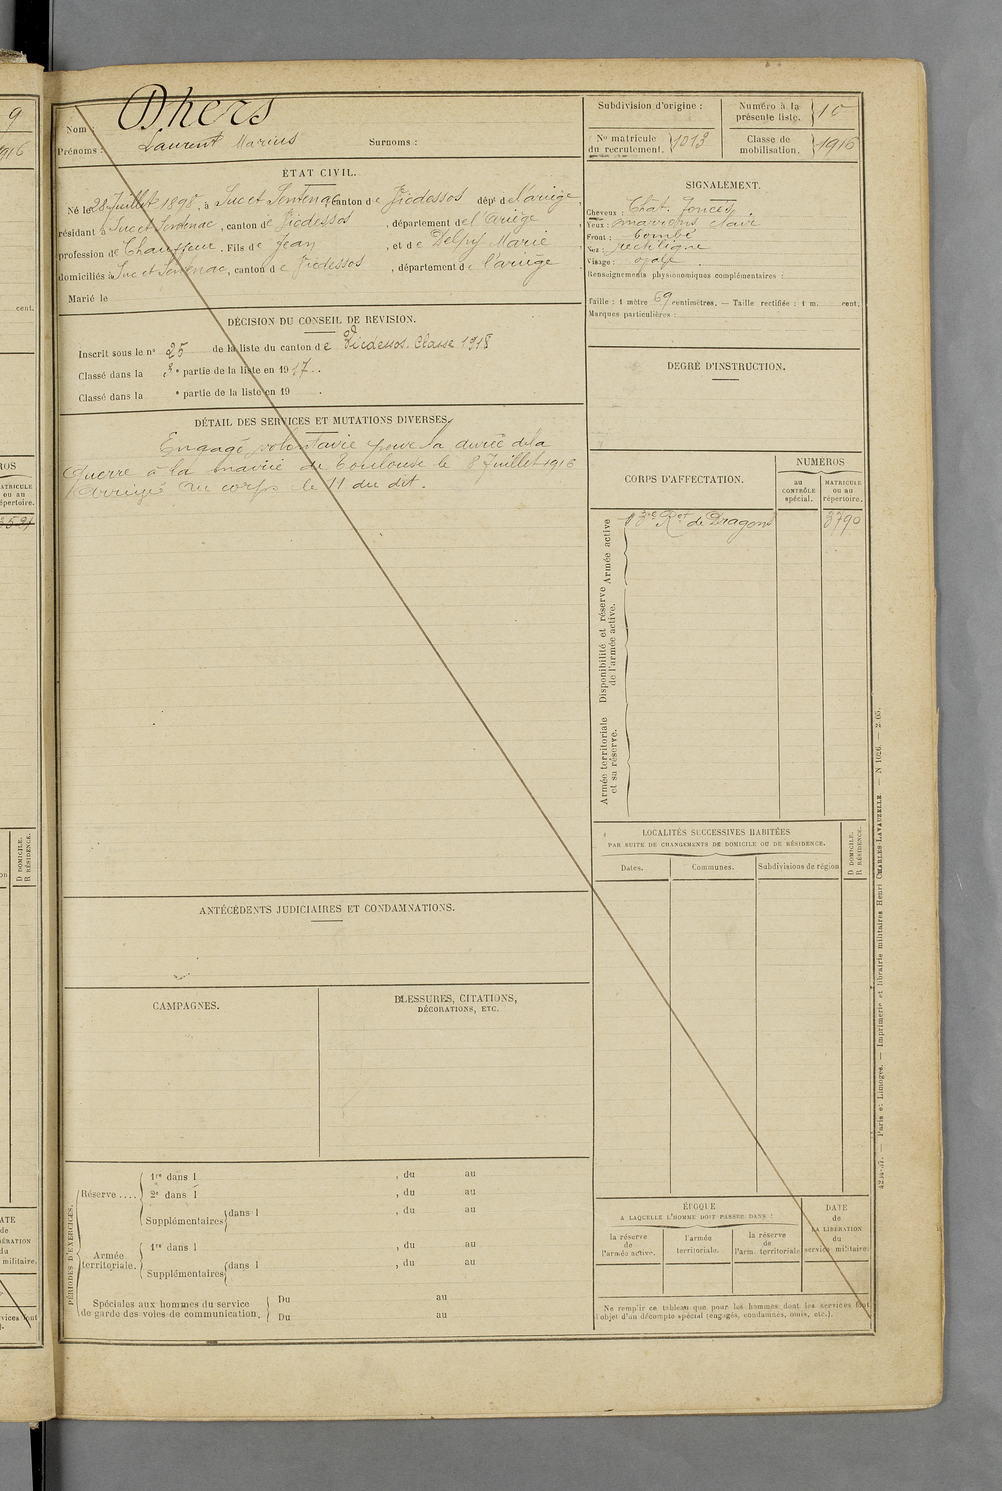 9
1916
cent.
NUMÉROS
MATRICULE
ou au
répertoire.
D DOMICILE.
R RÉSIDENCE.
Nom : Dhers
Prénoms : Laurent Marius Surnoms :
ÉTAT CIVIL.
Né le 28 Juillet 1898, à Suc et Sentenac, canton de Vicdessos dépt de l'ariège,
résidant à Suc et Sentenac, canton de Vicdessos, département de l'Ariège,
profession de Chauffeur. Fils de Jean, et de Delpy Marie,
domiciliés à Suc et Sentenac, canton de Vicdessos, département de l'ariège.
Marié le
DÉCISION DU CONSEIL DE REVISION.
Inscrit sous le n° 25 de la liste du canton de Vicdessos. Classe 1918
Classé dans la 2e partie de la liste en 1917.
Classé dans la e partie de la liste en 19 .
DÉTAIL DES SERVICES ET MUTATIONS DIVERSES.
Engagé volontaire pour la durée de la
Guerre à la mairie de Toulouse le 8 Juillet 1916
Arrivé au corps le 11 du dit.
ANTÉCÉDENTS JUDICIAIRES ET CONDAMNATIONS.
CAMPAGNES.
BLESSURES, CITATIONS,
DÉCORATIONS, ETC.
PÉRIODES D'EXERCICES.
Réserve ....
1re dans l , du au
2e dans l , du au
Supplémentaires dans l , du au
Armée
territoriale.
1re dans l , du au
Supplémentaires dans l , du au
Spéciales aux hommes du service
de garde des voies de communication.
Du au
Du au
Subdivision d'origine :
Numéro à la
présente liste. 10
N° matricule
du recrutement. 1013
Classe de
mobilisation. 1916
SIGNALEMENT.
Cheveux : Chat. foncés.
Yeux : marrons clair
Front : bombé
Nez : rectiligne
Visage : ovale.
Renseignements physionomiques complémentaires :
Taille : 1 mètre 69 centimètres. — Taille rectifiée : 1 m. cent.
Marques particulières :
DEGRÉ D'INSTRUCTION.
CORPS D'AFFECTATION.
NUMÉROS
au
CONTRÔLE
spécial.
MATRICULE
ou au
répertoire.
Armée active
Disponibilité et réserve
de l'armée active.
Armée territoriale
et sa réserve.
de Dragons 3790
LOCALITÉS SUCCESSIVES HABITÉES
PAR SUITE DE CHANGEMENTS DE DOMICILE OU DE RÉSIDENCE.
Dates.
Communes.
Subdivisions de région
D DOMICILE.
R RÉSIDENCE.
ÉPOQUE
A LAQUELLE L'HOMME DOIT PASSER DANS :
la réserve
de
l'armée active.
l'armée
territoriale.
la réserve
de
l'arm. territoriale
DATE
de
LA LIBÉRATION
du
service militaire.
Ne remplir ce tableau que pour les hommes dont les services font
l'objet d'un décompte spécial (engagés, condamnés, omis, etc.).
Paris et Limoges. — Imprimerie et librairie militaires Henri CHARLES-LAVAUZELLE. — N 1026. — 2-05.